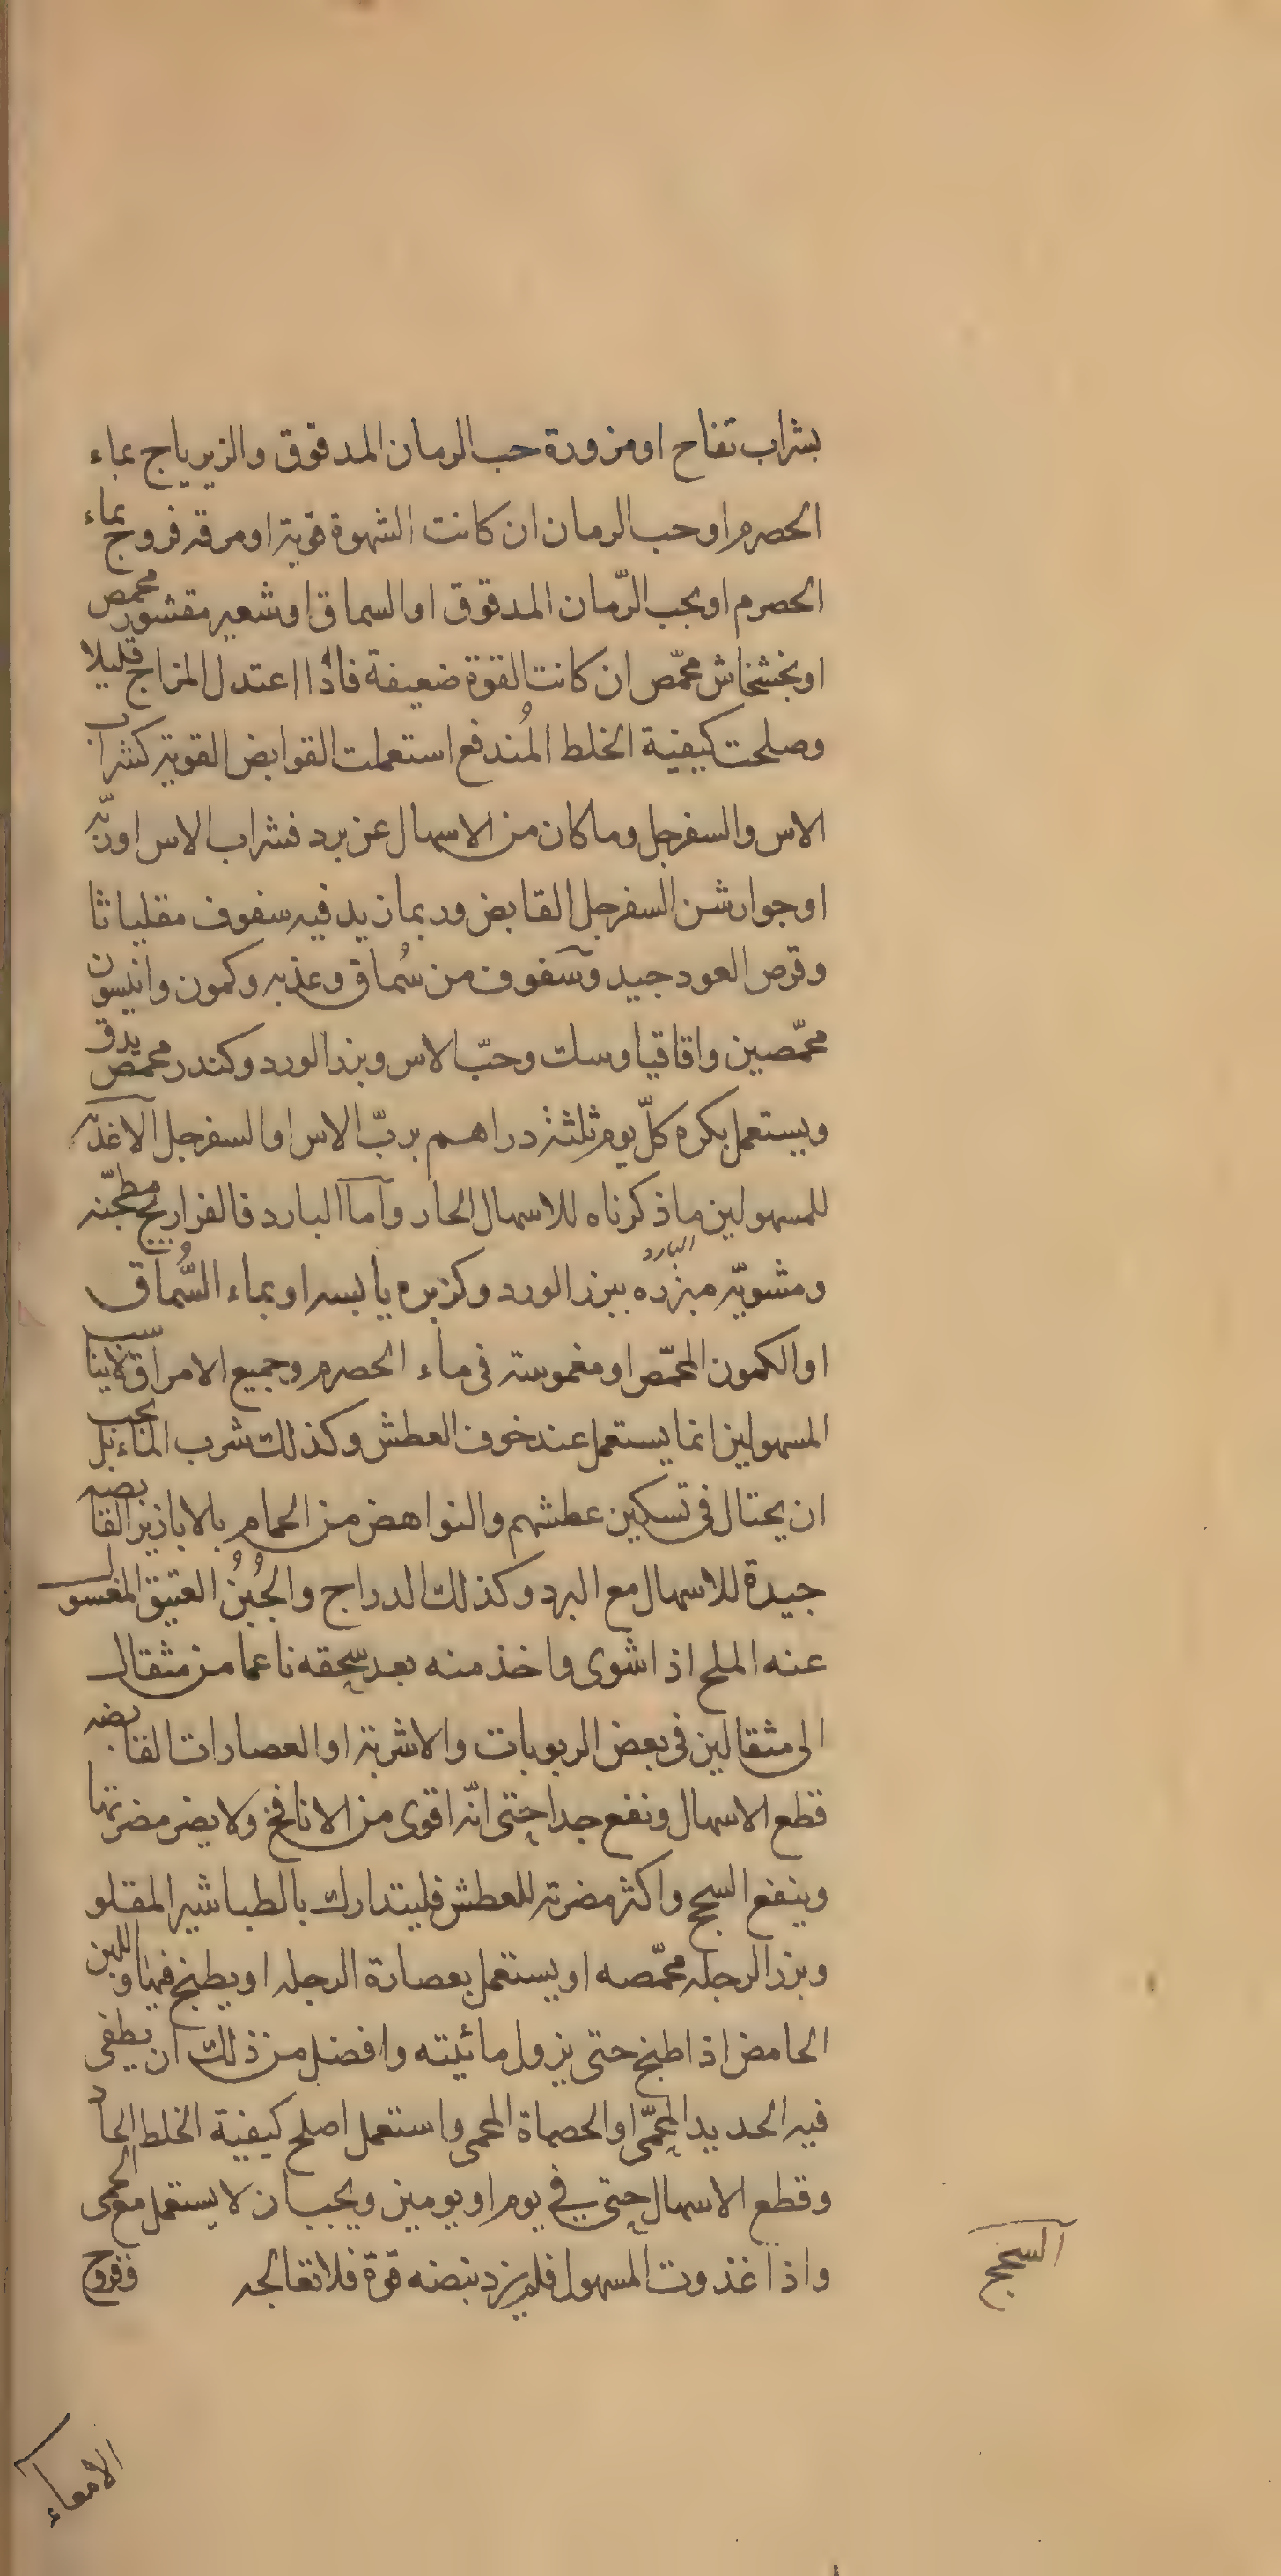 بشراب تفاح او مزورة حب الرمان المدقوق والزيرباج بماء
الحصرم او حب الرمان ان كانت الشهوة قوية او مرقه فروج بماء
الحصرم او بحب الرّمان المدقوق او السماق او شعير مقشور محمص
او بخشخاش محمّص ان كانت القوة ضعيفة فاذا اعتدل المزاج قليلا
وصلحت كيفية الخلط المُندفع استعملت القوابض القوية كشراب
الاس والسفرجل وما كان من الاسهال عن برد فشراب الاس او ربّه
او جوارشن السفرجل القابض وربما زيد فيه سفوف مقلياثا
وقرص العود جيد وسفوف من سُماق وعذبه وكمون وانيسون
محمّصين واقاقيا وسك وحبّ الاس وبزر الورد وكندر محمص يدق
ويستعمل بكره كلّ يوم ثلثة دراهم بربّ الاس او السفرجل الاغذيه
للمسهولين ما ذكرناه للاسهال الحار وامّا البارد فالفراريج مطجّنه
ومشويّه مبزره ببزر الورد وكزبره يابسه او بماء السُّماق
البارد
او الكمون المحمّص او مغموسة فى ماء الحصرم وجميع الامراق لا يناسب
المسهولين انما يستعمل عند خوف العطش وكذلك شرب الماء بل يجب
ان يحتال فى تسكين عطشهم والنواهض من الحمام بالابازير القابضه
جيدة للاسهال مع البرد وكذلك الدراج والجُبُنُ العتيق المغسول
عنه الملح اذا شوى واخذ منه بعد سحقه ناعما من مثقال
الى مثقالين فى بعض الربوبات والاشربة او العصارات القابضه
قطع الاسهال ونفع جدا حتى انّه اقوى من الانافخ ولا يضر مضرتها
وينفع السحج واكثر مضرته للعطش فليتدارك بالطباشير المقلو
وبزر الرجله محمّصه او يستعمل بعصارة الرجله او يطبخ فيها واللبن
الحامض اذا طبخ حتى يزول مائيته وافضل من ذلك ان يطفى
فيه الحديد المحمّى او الحصاة المحمى واستعمل اصلح كيفية الخلط الحاد
وقطع الاسهال حتى في يوم او يومين ويجب ان لا يستعمل مع الحمى
واذا غذوت المسهول فلم يزد نبضه قوّة فلا تعالجه
وقروح
السحج
الامعاء